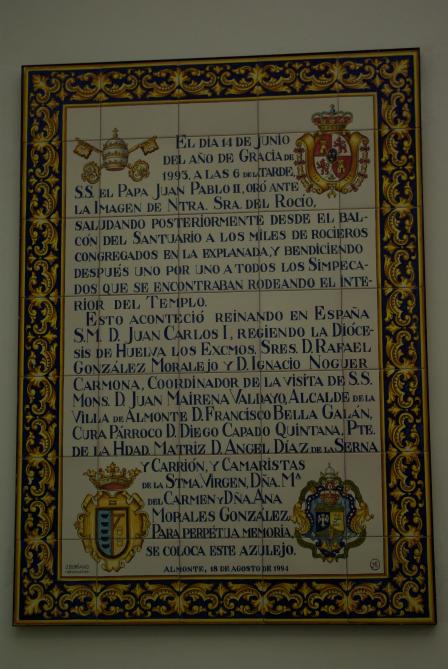 EL DIA 14 DE JUNIO
DEL AÑO DE GRACIA DE
1993, A LAS 6 DE LA TARDE,
S.S. EL PAPA JUAN PABLO II, ORÓ ANTE
LA IMAGEN DE NTRA. SRA. DEL ROCÍO,
SALUDANDO POSTERIORMENTE DESDE EL BAL-
CÓN DEL SANTUARIO A LOS MILES DE ROCIEROS
CONGREGADOS EN LA EXPLANADA, Y BENDICIENDO
DESPUÉS UNO POR UNO A TODOS LOS SIMPECA-
DOS QUE SE ENCONTRABAN RODEANDO EL INTE-
RIOR DEL TEMPLO.
ESTO ACONTECIÓ REINANDO EN ESPAÑA
S.M. D. JUAN CARLOS I, REGIENDO LA DIÓCE-
SIS DE HUELVA LOS EXCMOS. SRES. D. RAFAEL
GONZÁLEZ MORALEJO Y D. IGNACIO NOGUER
CARMONA, COORDINADOR DE LA VISITA DE S.S.
MONS. D. JUAN MAIRENA VALDAYO, ALCALDE DE LA
VILLA DE ALMONTE D. FRANCISCO BELLA GALÁN,
CURA PÁRROCO D. DIEGO CAPADO QUINTANA, PTE.
DE LA HDAD. MATRIZ D. ANGEL DÍAZ DE LA SERNA
Y CARRIÓN, Y CAMARISTAS
DE LA STMA. VIRGEN, DÑA. Mª
DEL CARMEN Y DÑA. ANA
MORALES GONZÁLEZ.
PARA PERPÉTUA MEMORIA,
SE COLOCA ESTE AZULEJO.
ALMONTE, 18 DE AGOSTO DE 1994